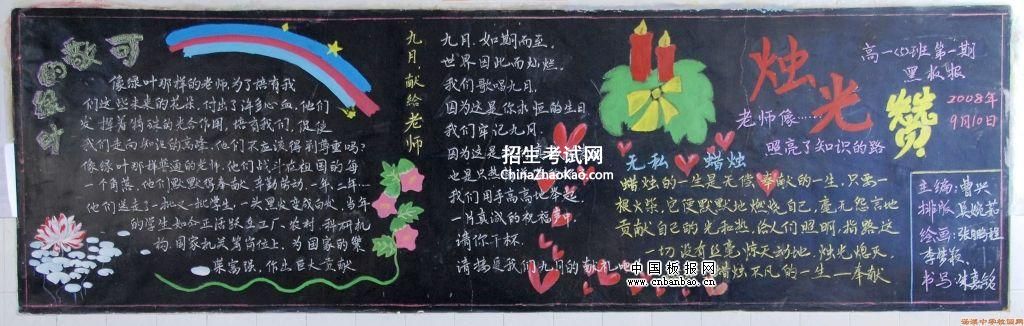 可敬的绿叶
像绿叶那样的老师,为了培育我
们这些未来的花朵,付出了许多心血,他们
发挥着特殊的光合作用,培育我们,促使
我们走向知识的高峰,他们不应该得到尊重吗?
像绿叶那样普通的老师,他们战斗在祖国的每
一个角落,他们默默得奉献,辛勤劳动,一年,二年…
他们送走了一批又一批学生,一头黑发变成白发,当年
的学生如今正活跃在工厂、农村、科研机
构,国家机关等岗位上,为国家的繁
荣富强,作出巨大贡献
九月,献给老师
九月,如期而至,
世界因此而灿烂,
我们歌唱九月,
因为这是你永恒的生日
我们牢记九月,
因为这是
也是只
我们用手高高地举起,
一片真诚的祝福声中
请你干杯,
请接受我们九月的献礼吧
烛光赞
老师像……
照亮了知识的路
无私 蜡烛
蜡烛的一生是无偿奉献的一生,只要一
根火柴,它便默默地燃烧自己,毫无怨言地
贡献自己的光和热,给人们照明,指路这
一切没有丝毫惊天动地,烛光熄灭,
蜡烛不凡的一生—奉献
高一班第一期
黑板报
2008年
9月10日
主编:曹兴
排版
绘画:张鹏程
书写
招生考试网
ChinaZhaokao.com
中国板报网
www.cnbanbao.cn